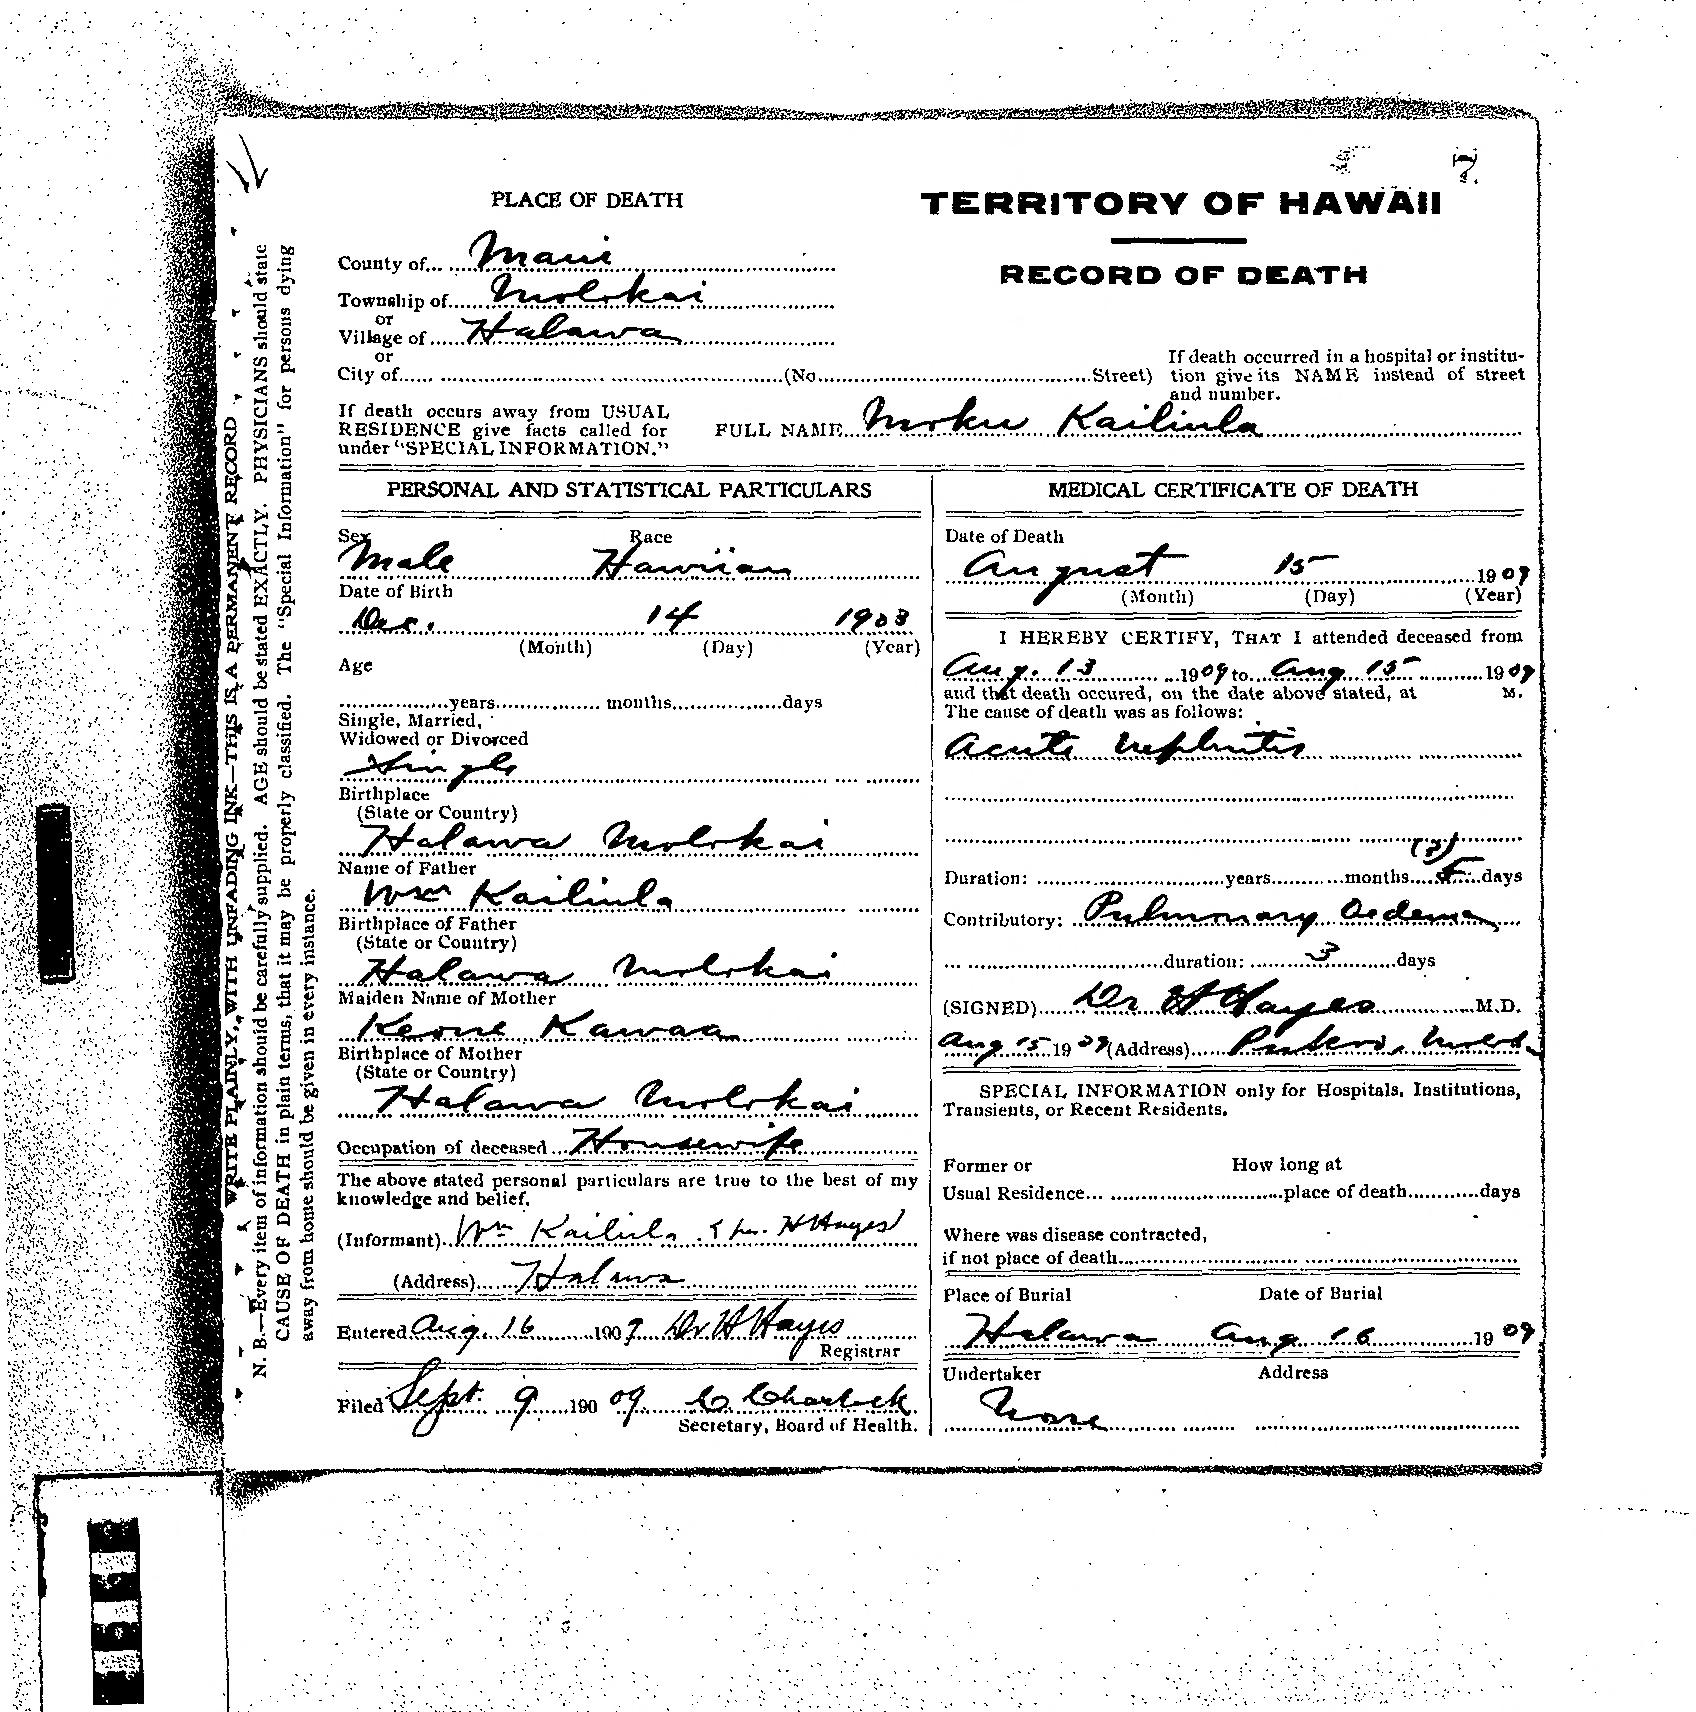 7
PLACE OF DEATH
TERRITORY OF HAWAII
RECORD OF DEATH
County of Maui
Township of Molokai
or
Village of Halawa
or
City of (No. Street)
If death occurred in a hospital or institu-
tion give its NAME instead of street
and number.
If death occurs away from USUAL
RESIDENCE give facts called for
under "SPECIAL INFORMATION."
FULL NAME Moku Kailiula
PERSONAL AND STATISTICAL PARTICULARS
Sex Race
Male Hawiian
Date of Birth
Dec. 14 1908
(Month) (Day) (Year)
Age
years months days
Single, Married,
Widowed or Divorced
Single
Birthplace
(State or Country)
Halawa Molokai
Name of Father
Wm Kailiula
Birthplace of Father
(State or Country)
Halawa Molokai
Maiden Name of Mother
Keone Kawaa
Birthplace of Mother
(State or Country)
Halawa Molokai
Occupation of deceased Housewife
The above stated personal particulars are true to the best of my
knowledge and belief.
(Informant) Wm Kailiula & H Hayes
(Address) Halawa
Entered Aug. 16 1909 Dr H Hayes
Registrar
Filed Sept. 9 190 09 Charlock
Secretary, Board of Health.
MEDICAL CERTIFICATE OF DEATH
Date of Death
August 15 1909
(Month) (Day) (Year)
I HEREBY CERTIFY, THAT I attended deceased from
Aug. 13 1909 to Aug 15 1909
and that death occured, on the date above stated, at M.
The cause of death was as follows:
Acute Nephritis
Duration: years months days
Contributory: Pulmonary Oedema
duration: 3 days
(SIGNED) Dr H Hayes M.D.
Aug 15 1909 (Address) Pukoo,
SPECIAL INFORMATION only for Hospitals, Institutions,
Transients, or Recent Residents.
Former or How long at
Usual Residence place of death days
Where was disease contracted,
if not place of death
Place of Burial Date of Burial
Halawa Aug 16 1909
Undertaker Address
None
WRITE PLAINLY, WITH UNFADING INK—THIS IS A PERMANENT RECORD
N. B.—Every item of information should be carefully supplied. AGE should be stated EXACTLY. PHYSICIANS should state
CAUSE OF DEATH in plain terms, that it may be properly classified. The "Special Information" for persons dying
away from home should be given in every instance.